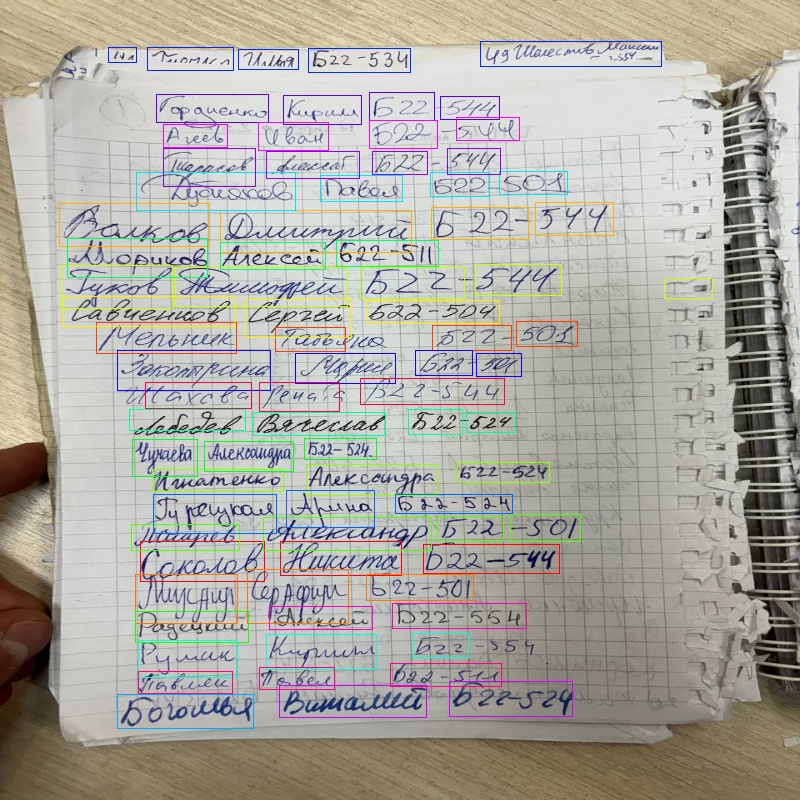 Илья Б22-534
49 Шелестов Максим
Гордиенко Кирилл Б22-544
Агеев Иван Б22-544
Тарасов Алексат Б22-544
Павел Б22-501
Волков Дмитрий Б22-544
Мориков Алексей Б22-511
Гуков Тимофей Б22-544
Савченков Сергей Б22-504
Мельник Татьяна Б22-501
Мария Б22-501
Шахова Рената Б22-544
Лебедев Вячеслав Б22-524
Чучаева Александра Б22-524.
Игнатенко Александра Б22-524
Гурецкая Арина Б22-524
Александр Б22-501
Соколов Никита Б22-544
Серафим Б22-501
Радецкий Алексей Б22-554
Румак Кирилл Б22-554
Павлен Павел Б22-511
Богомья Виталий Б22-524